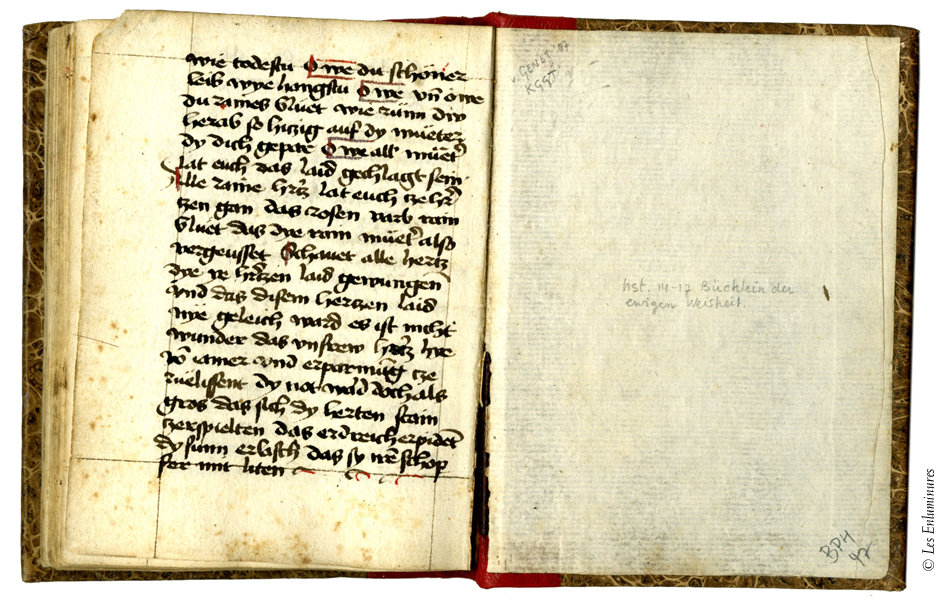 wie todestu O we du schoner
leib wye hangstu O we vn̄ owe
du rains bluet wie rünn diw
herab so hiczig auf dy mueter
dy dich gepar O we all muet͛
lat euch das laid gechlagt sein
Alle raine hr̄cz lat euch cze hr̄
czen gan das rosen varb rain
bluet das dye rain muet͛ also
vergeusset Schauet alle hertz
dye ye hr̄czen laid gewungen̄
vnd das disem herczen laid
nye geleich ward es ist nicht
wunder das vnsrew hr̄cz hye
vō iamer vnd erparmūg cze
rueliffent dy not wād doch als
gros das sich dy herten stain
zerspielten das erdreich erpidet̄
dy sunn erlasch das sy irē schop
fer mit liten
v. GENDT '87
KG95
hst. 14-17 Büchlein der
ewigen Weisheit.
BPH
92
© Les Enluminures